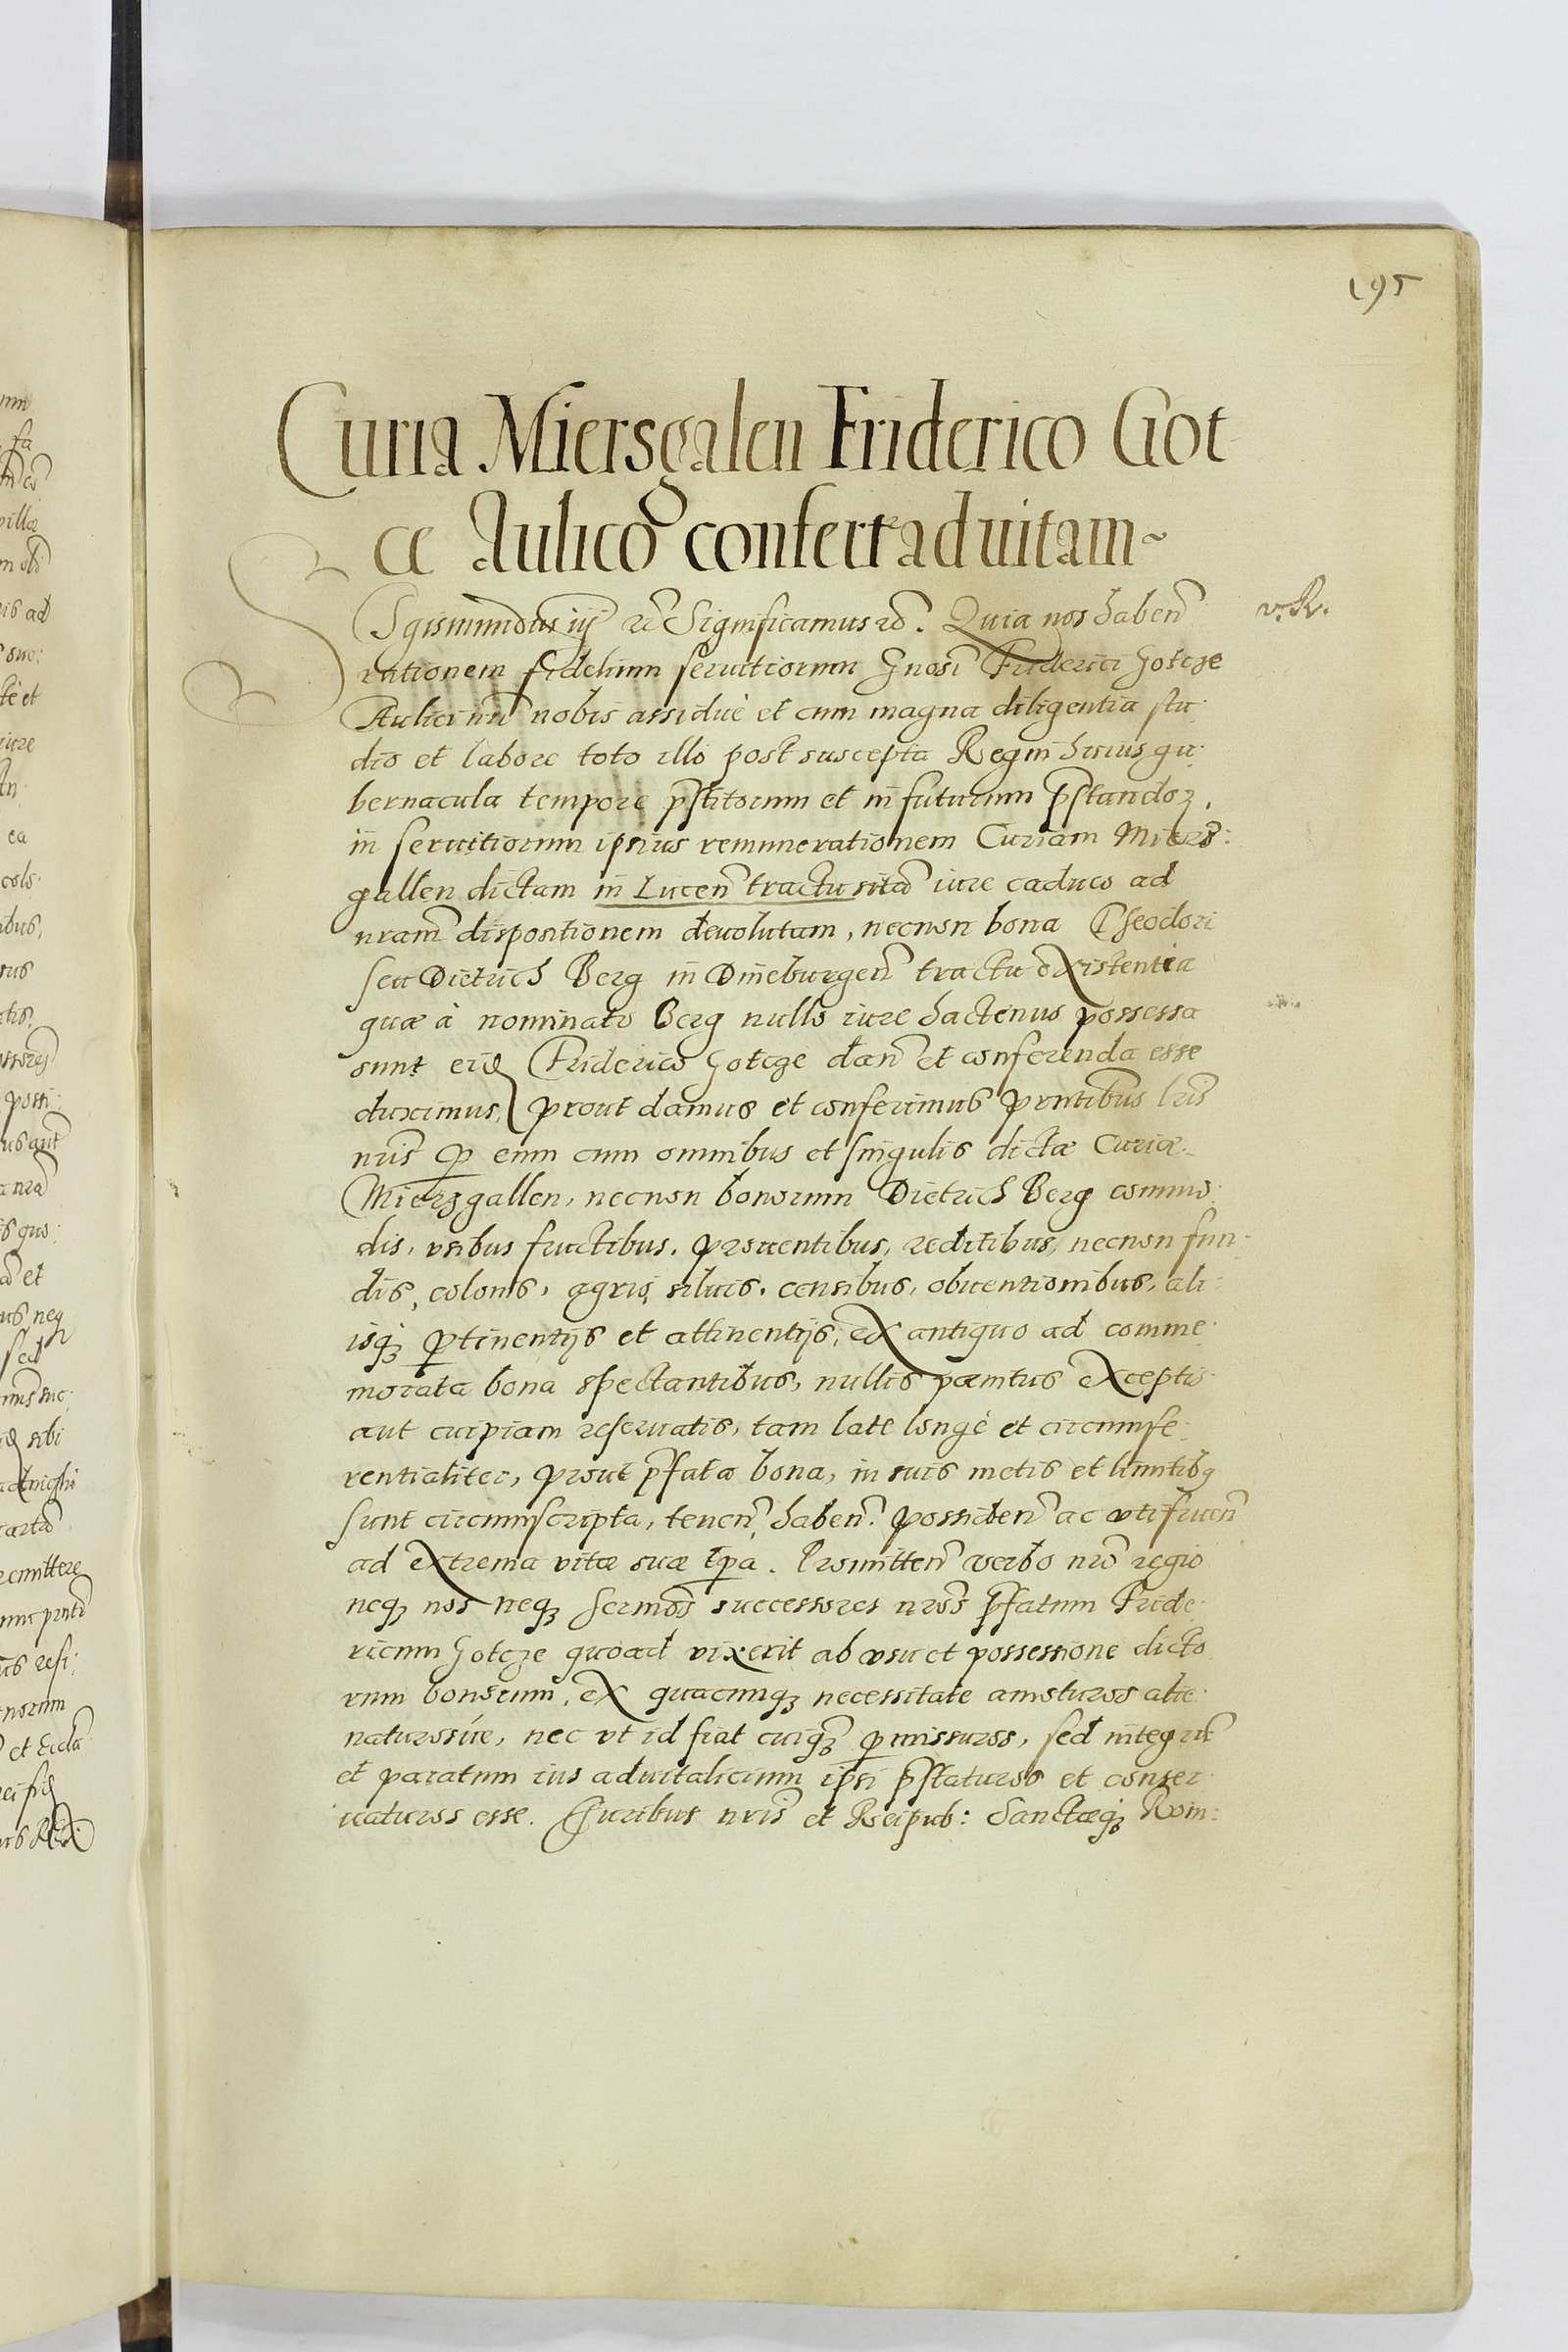 195
Curia Miersgalen Friderico Got
ce Aulico confert ad uitam~
Sgismundus iij etc Significamus etc. Quia nos haben̄
v. R.
rationem fidelium seruitiorum Gnosi Friderici Gotcze
Aulici nrī nobis assiduè et cum magna diligentia stu-
dio et labore toto illo post suscepta Regni huius gu-
bernacula tempore p̄stitorum et in futurum p̄standoꝝ,
in seruitiorum ipsius remunerationem Curiam Miers-
gallen dictam in Lucen̄ tractu sitā iure caduco ad
nram̄ dispositionem deuolutam, necnon bona Theodori
seu Dietrich Berg in Dineburgen̄ tractu existentia
quæ à nominato Berg nullo iure hactenus possessa
sunt eid Friderico Gotcze dan̄ et conferenda esse
duximus, prout damus et conferimus pn̄tibus lrīs
nrīs ꝑ eum cum omnibus et singulis dictæ Curiæ
Miersgallen, necnon bonorum Dietrich Berg commo-
dis, vsibus fructibus, prouentibus, reditibus, necnon fun-
dis, colonis, agris, siluis, censibus, obuentionibus, ali-
isqꝫ ꝑtinentijs et attinentijs, ex antiquo ad comme-
morata bona spectantibus, nullis pænitus exceptis
aut cuipiam reseruatis, tam late longè et circumfe-
rentialiter, prout p̄fata bona, in suis metis et limitibꝫ
sunt circumscripta, tenen̄, haben̄. possiden̄ ac vtifruen̄
ad extrema vitæ suæ tp̄a. Promitten̄ verbo nrō regio
neqꝫ nos neqꝫ Sermōs successores nrōs p̄fatum Fride-
ricum Gotcze quoad vixerit ab vsu et possessione dicto
rum bonorum, ex quacunqꝫ necessitate amoturos alie-
naturosúe, nec vt id fiat cuiqꝫ ꝑmissuros, sed integrū
et paratum ius aduitalicium ipsi p̄staturos et conser-
uaturos esse. Iuribus nrīs et Reipub: Sanctæqꝫ Rom: